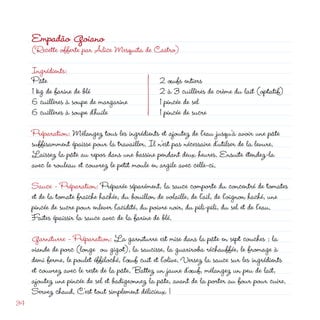 Empadão Goiano
(Recette offerte par Alice Mesquita de Castro)
Ingrédients:
Pâte
1 kg de farine de blé
6 cuillères à soupe de margarine
6 cuillères à soupe d'huile
2 œufs entiers
2 à 3 cuillères de crème du lait (optatif)
1 pincée de sel
1 pincée de sucre
Préparation: Mélangez tous les ingrédients et ajoutez de l'eau jusqu'à avoir une pâte
suffisamment épaisse pour la travailler. Il n'est pas nécessaire d'utiliser de la levure.
Laissez la pâte au repos dans une bassine pendant deux heures. Ensuite étendez-la
avec le rouleau et couvrez le petit moule en argile avec celle-ci.
Sauce - Préparation: Préparée séparément, la sauce comporte du concentré de tomates
et de la tomate fraîche hachée, du bouillon de volaille, de l'ail, de l'oignon haché, une
pincée de sucre pour enlever l'acidité, du poivre noir, du pili-pili, du sel et de l'eau.
Faites épaissir la sauce avec de la farine de blé.
Garniture - Préparation: La garniture est mise dans la pâte en sept couches : la
viande de porc (longe ou gigot), la saucisse, la guariroba réchauffée, le fromage à
demi ferme, le poulet effiloché, l'œuf cuit et l'olive. Versez la sauce sur les ingrédients
et couvrez avec le reste de la pâte. Battez un jaune d'œuf, mélangez un peu de lait,
ajoutez une pincée de sel et badigeonnez la pâte, avant de la porter au four pour cuire.
Servez chaud. C'est tout simplement délicieux !